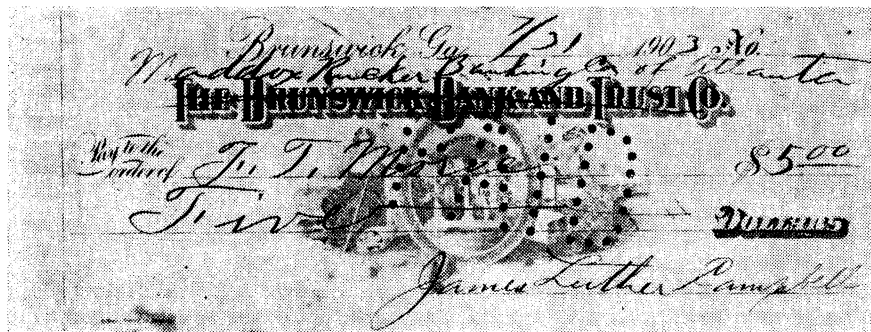 Brunswick, Ga. 7/31 1903 No.
Maddox Rucker Banking Co of Atlanta
THE BRUNSWICK BANK AND TRUST CO.
Pay to the order of F. T. Morse $5.00
Five DOLLARS
James Luther Campbell